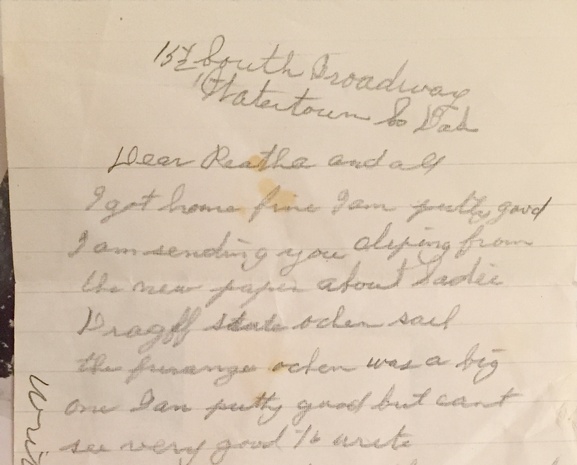 157 South Broadway
Watertown So Dak
Dear Reatha and all
I got home fine I am putty good
I am sending you cliping from
the new paper about Sadie
state ochen sail
the ochen was a big
one I an putty good but cant
see very good to write
Writ